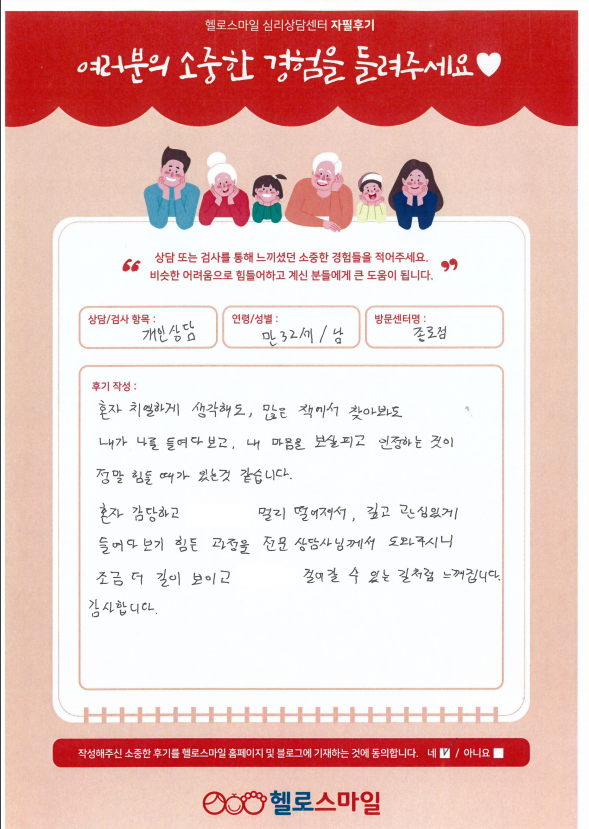 헬로스마일 심리상담센터 자필후기
여러분의 소중한 경험을 들려주세요
상담 또는 검사를 통해 느끼셨던 소중한 경험들을 적어주세요.
비슷한 어려움으로 힘들어하고 계신 분들에게 큰 도움이 됩니다.
상담/검사 항목 : 개인상담
연령/성별 : 만32세/남
방문센터명 : 종로점
후기 작성 :
혼자 치열하게 생각해도, 많은 책에서 찾아봐도
내가 나를 들여다보고, 내 마음을 보살피고 인정하는 것이
정말 힘들 때가 있는것 같습니다.
혼자 감당하고 멀리 떨어져서, 깊고 관심있게
들여다보기 힘든 과정을 전문 상담사님께서 도와주시니
조금 더 길이 보이고 걸어갈 수 있는 길처럼 느껴집니다.
감사합니다.
작성해주신 소중한 후기를 헬로스마일 홈페이지 및 블로그에 기재하는 것에 동의합니다. 네 V / 아니요
헬로스마일